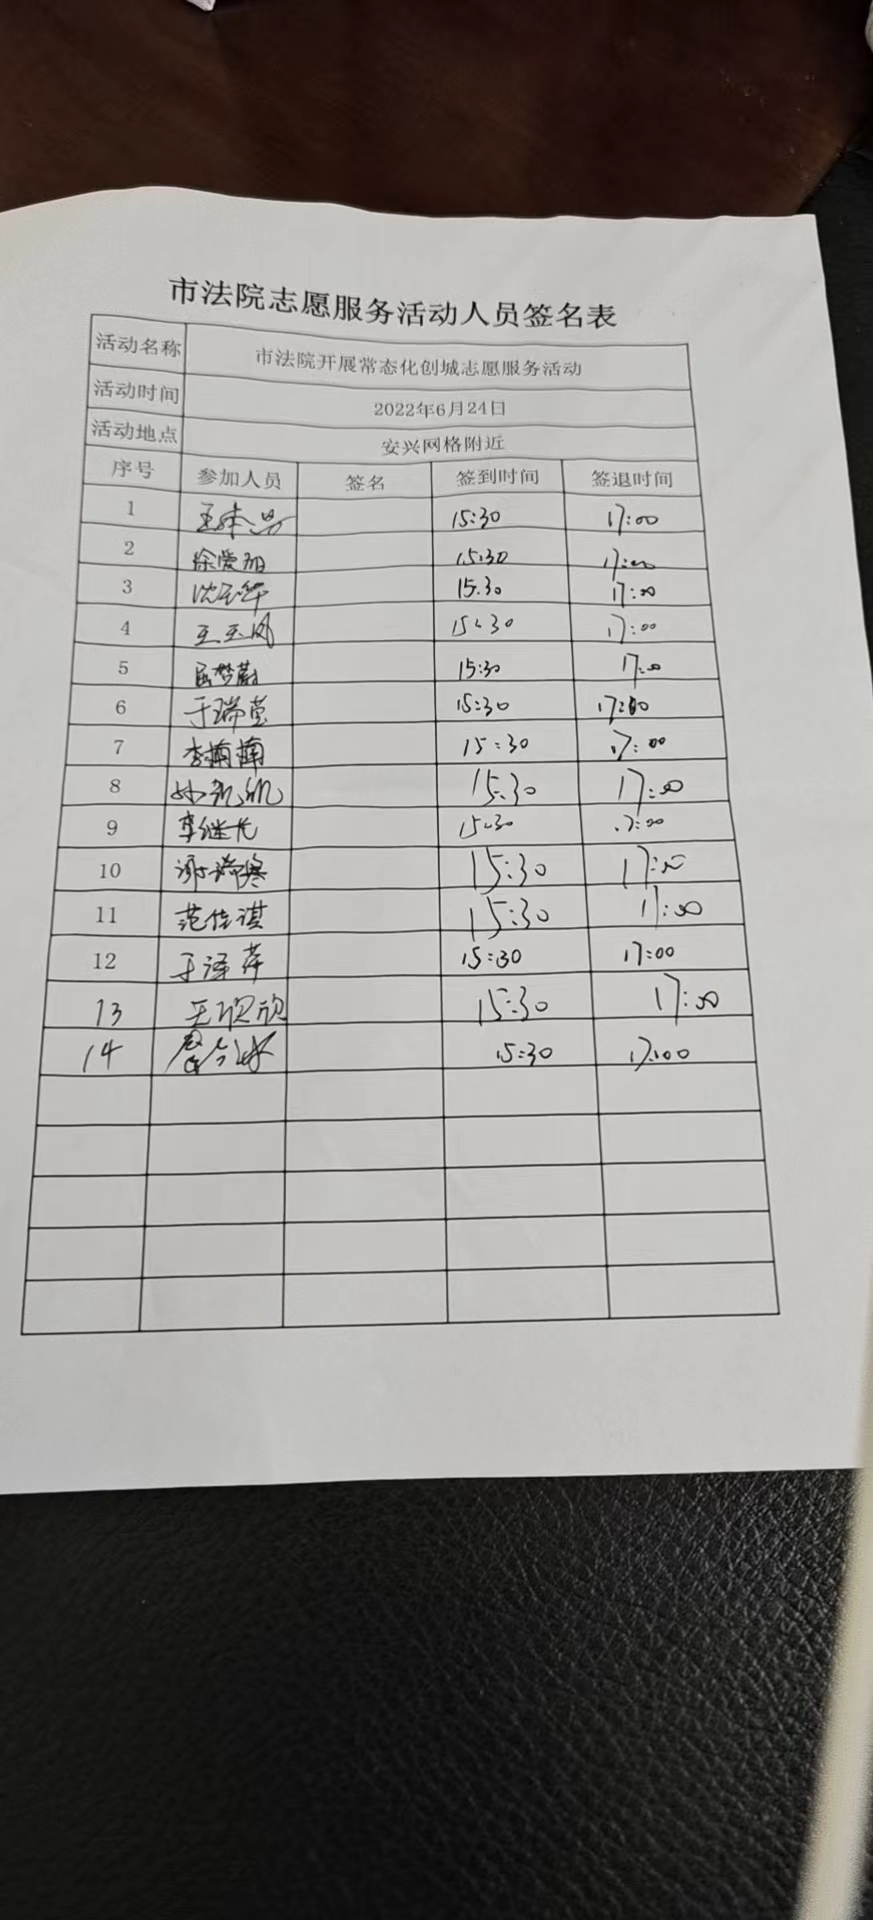 市法院志愿服务活动人员签名表
活动名称 市法院开展常态化创城志愿服务活动
活动时间 2022年6月24日
活动地点 安兴网格附近
序号 参加人员 签名 签到时间 签退时间
1 15:30 17:00
2 徐爱 15:30 17:00
3 沈玉华 15:30 17:00
4 王玉凤 15:30 17:00
5 屈梦蔚 15:30 17:00
6 于瑞莹 15:30 17:00
7 李楠楠 15:30 17:00
8 15:30 17:00
9 李继光 15:30 17:00
10 谢 15:30 17:00
11 范佳淇 15:30 17:00
12 于泽萍 15:30 17:00
13 王欣欣 15:30 17:00
14 15:30 17:00